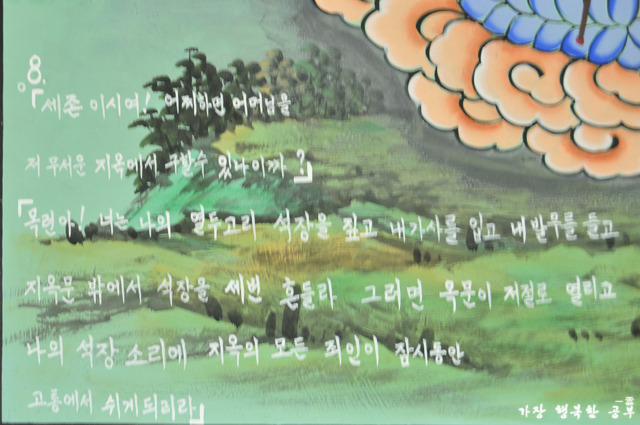 8.
『세존이시여! 어찌하면 어머님을
저 무서운 지옥에서 구할수 있나이까?』
『목련아! 너는 나의 열두고리 석장을 짚고 내가사를 입고 내발우를 들고
지옥문 밖에서 석장을 세번 흔들라 그러면 옥문이 저절로 열리고
나의 석장 소리에 지옥의 모든 죄인이 잠시동안
고통에서 쉬게되리라』
가장 행복한 공부